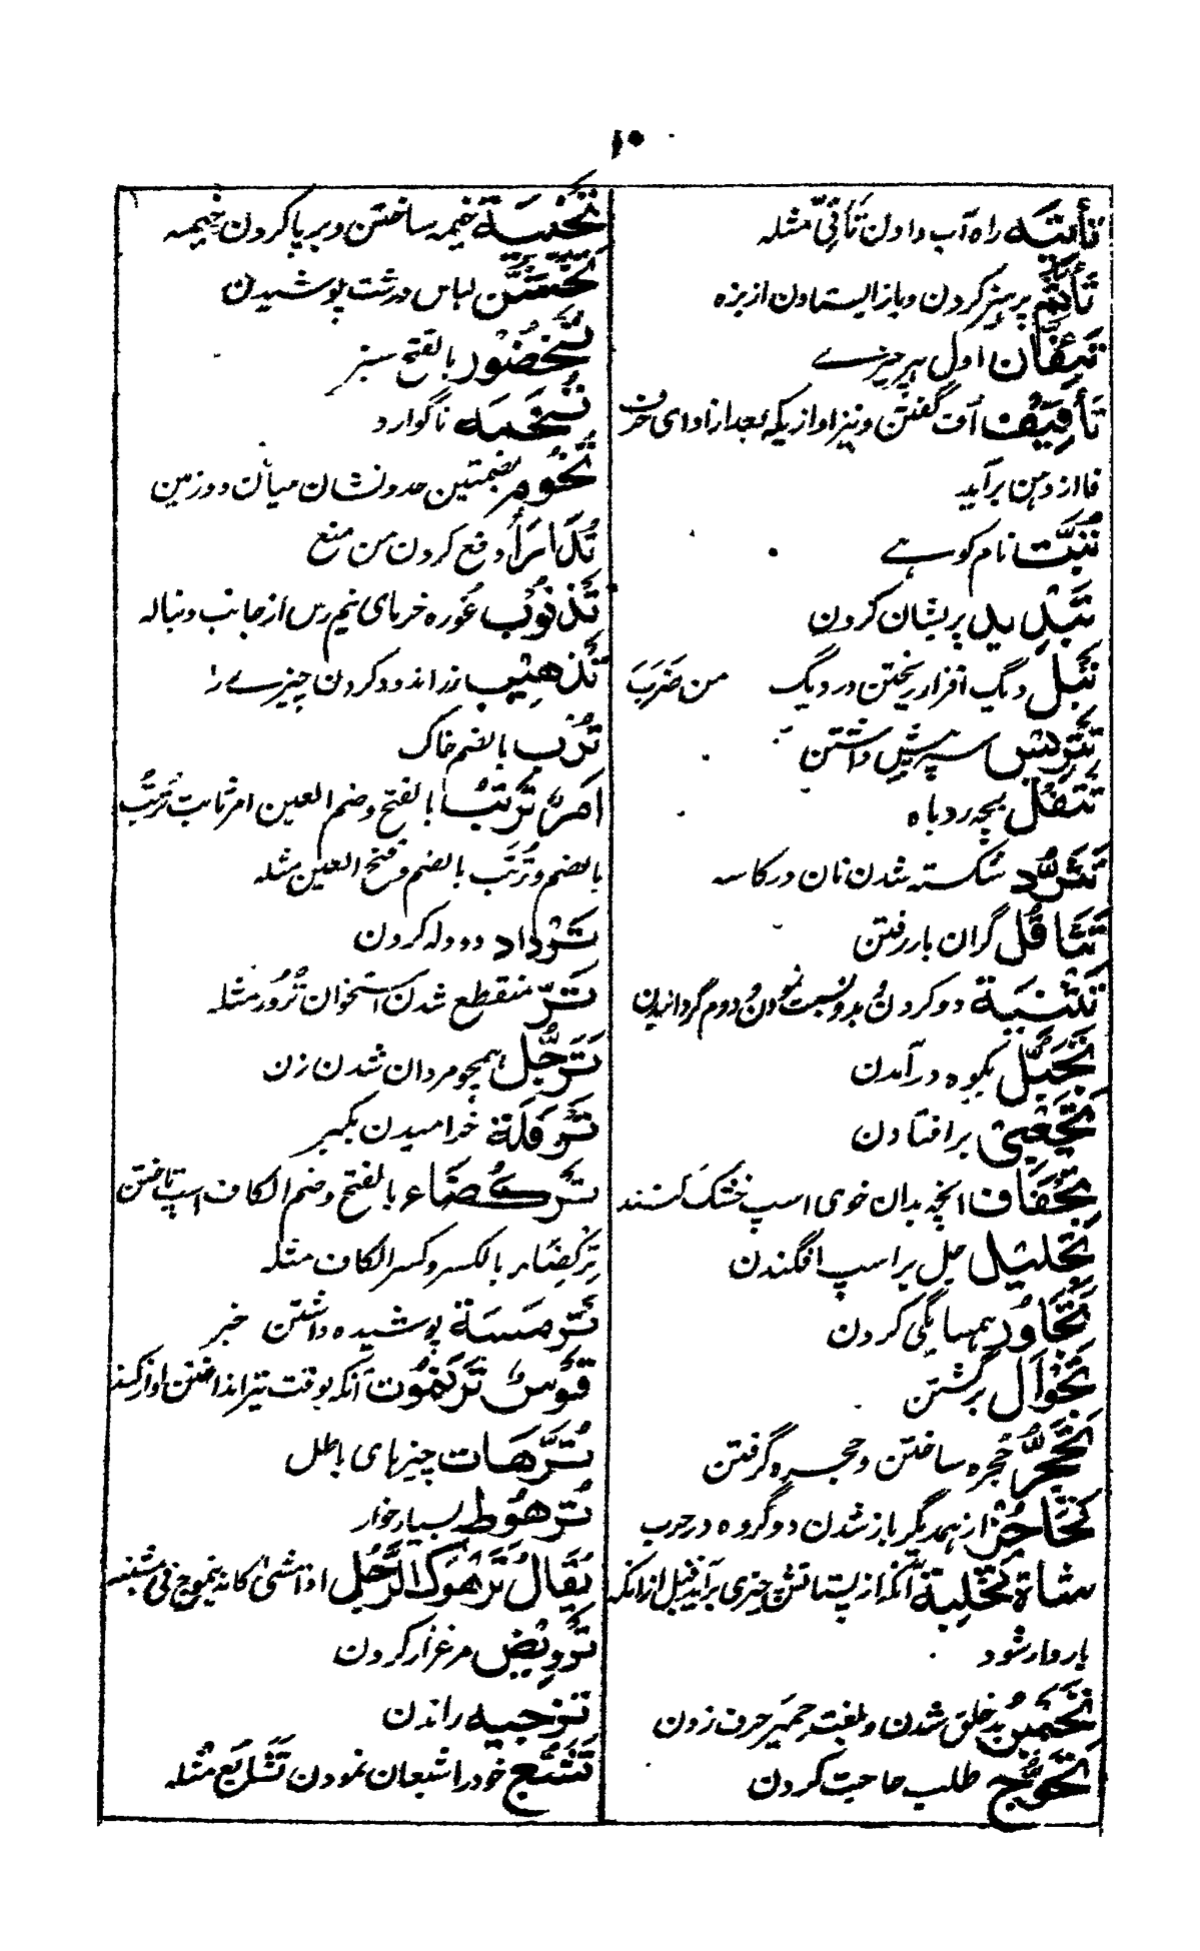 ۱۰
تأتیه راه آب دادن تَأَتِّیٌ مثله
تأثم پرهیز کردن و باز ایستادن از بزه
تئفان اول هر چیزے
تأفیف اُف گفتن و نیز اوازیکه بعد از ادای حرف
فا از دهن برآید
تبت نام کوهے
تبدید پریشان کردن
تبل دیگ افزار ریختن در دیگ من ضَرَبَ
تتریس سپر پیش داشتن
تتفل بچه روباه
تثرد شکسته شدن نان در کاسه
تثاقل گران بار رفتن
تثنیة دو کردن و بدو نسبت نمودن و دوم گردانیدن
تجبل بکوه در آمدن
بر افتادن
تجفاف انچه بدان خوی اسپ خشک کنند
تجلیل جل بر اسپ افگندن
تجاور همسایگی کردن
تجوال برگشتن
تحجر حُجره ساختن و حجره گرفتن
تحاجز از همدیگر باز شدن دو گروه در حرب
شاة تحلبة آنکه از پستانش چیزی برآید قبل از انکه
باردار شود
بدخلق شدن و بلغت حمیر حرف زدن
تحوج طلب حاجت کردن
تخییة خیمه ساختن و برپا کردن خیمه
تخشن لباس درشت پوشیدن
تخضور بالفتح سبز
تخمه ناگوارد
تخوم بضمتین حد و نشان میان دو زمین
تدرأ دفع کردن من منع
تذنوب غوره خرمای نیم رس از جانب دنباله
تذهیب زر اندود کردن چیزے را
ترب بالضم خاک
امر ترتب بالفتح و ضم العین امر ثابت تُرتُب
بالضم و تُرتَب بالضم و فتح العین مثله
ترداد دو دله کردن
تر منقطع شدن استخوان تُرُور مثله
ترجل همچو مردان شدن زن
ترفلة خرامیدن بکبر
ترکضاء بالفتح و ضم الکاف اسپ تاختن
تِرْکِضَاء بالکسر و کسر الکاف مثله
ترمسة پوشیده داشتن خبر
قوس ترنموت آنکه بوقت تیر انداختن اواز کند
ترهات چیزهای باطل
ترهوط بسیار خوار
یقال ترهوک الرجل اذا مشی کانه یموج فی مشیته
ترویض مرغزار کردن
تزجیه راندن
تشبع خود را شبعان نمودن تَشَابُع مثله